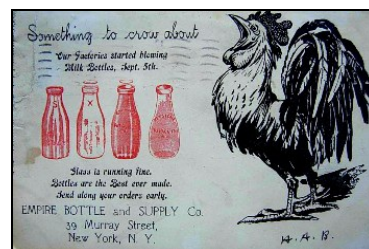 Something to crow about
Our Factories started blowing
Milk Bottles, Sept. 5th.
Glass is running fine.
Bottles are the Best ever made.
Send along your orders early.
EMPIRE BOTTLE and SUPPLY Co.
39 Murray Street,
New York, N. Y.
H. A. B.